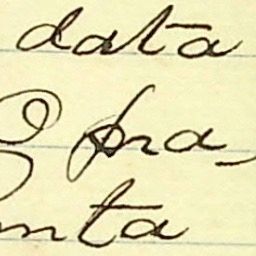 data
O pra,
nta